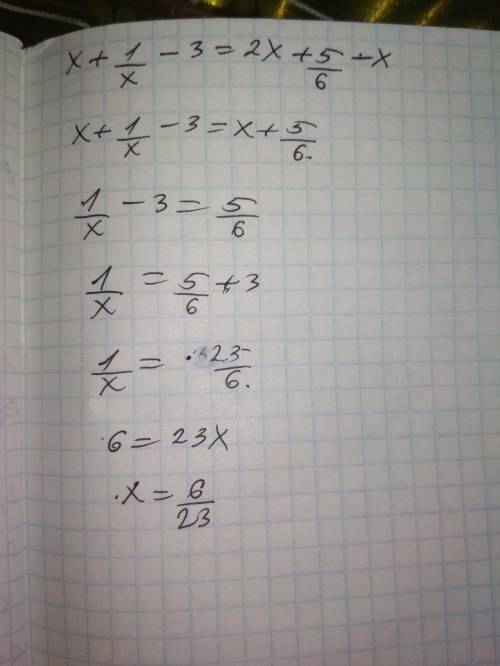 x + 1/x - 3 = 2x + 5/6 - x
x + 1/x - 3 = x + 5/6
1/x - 3 = 5/6
1/x = 5/6 + 3
1/x = 23/6
6 = 23x
x = 6/23